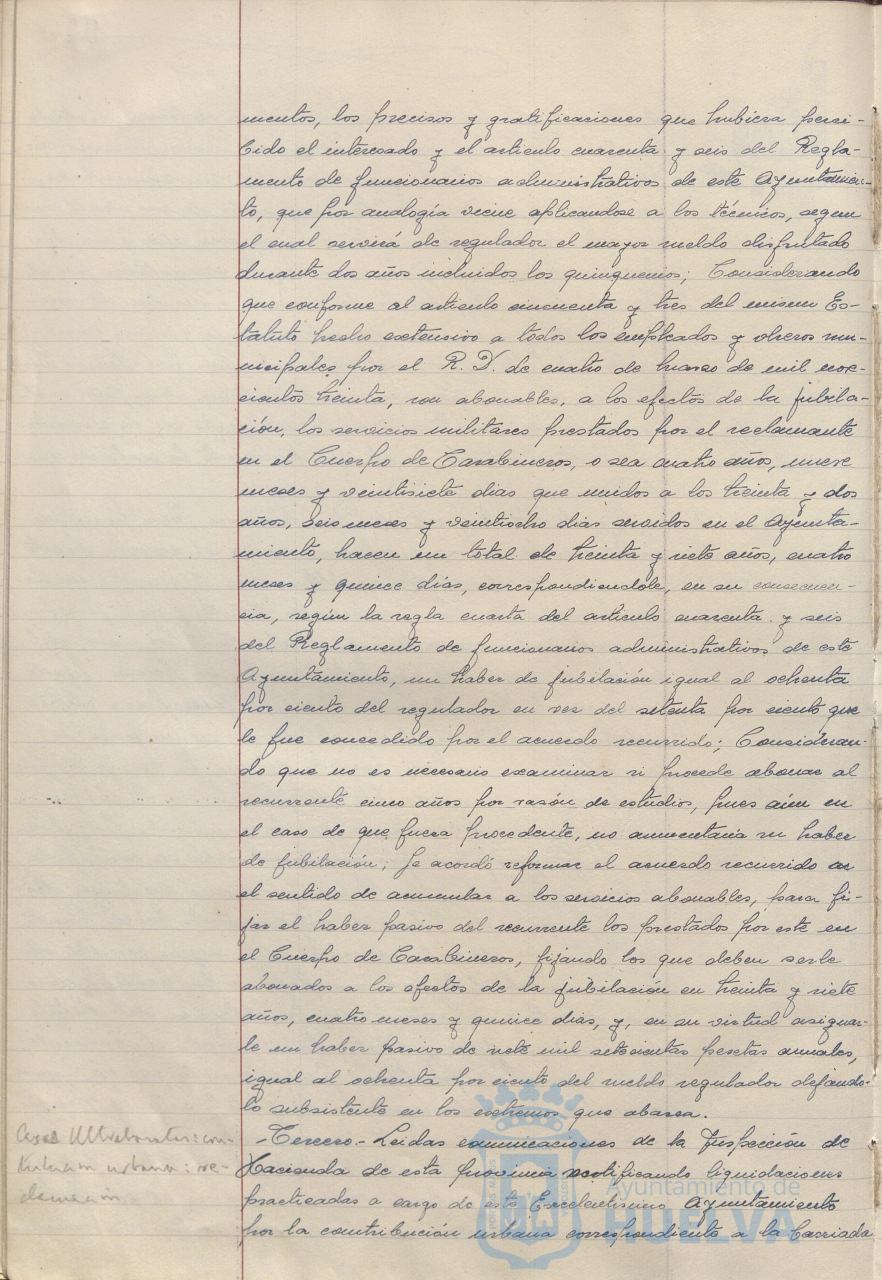 mentos, los precisos y gratificaciones que hubiera perci-
bido el interesado y el artículo cuarenta y seis del Regla-
mento de funcionarios administrativos de este Ayuntamien-
to, que por analogía viene aplicandose a los técnicos, segun
el cual servirá de regulador el mayor sueldo disfrutado
durante dos años incluidos los quinquenios; Considerando
que conforme al articulo cincuenta y tres del mismo Es-
tatuto hecho extensivo a todos los empleados y obreros mu-
nicipales por el R. D. de cuatro de marzo de mil nove-
cientos treinta, son abonables, a los efectos de la jubila-
ción, los servicios militares prestados por el reclamante
en el Cuerpo de Carabineros, o sea cuatro años, nueve
meses y veintisiete dias que unidos a los treinta y dos
años, seis meses y veintiocho dias servidos en el Ayunta-
miento, hacen un total de treinta y siete años, cuatro
meses y quince días, correspondiendole, en su consecuen-
cia, según la regla cuarta del articulo cuarenta y seis
del Reglamento de funcionarios administrativos de este
Ayuntamiento, un haber de jubilación igual al ochenta
por ciento del regulador en vez del setenta por ciento que
le fue concedido por el acuerdo recurrido; Consideran-
do que no es necesario examinar si procede abonar al
recurrente cinco años por razón de estudios, pues aún en
el caso de que fuera procedente, no aumentaria su haber
de jubilación; Se acordó reformar el acuerdo recurrido en
el sentido de acumular a los servicios abonables, para fi-
jar el haber pasivo del recurrente los prestados por este en
el Cuerpo de Carabineros, fijando los que deben serle
abonados a los efectos de la jubilación en treinta y siete
años, cuatro meses y quince dias, y, en su virtud asignar-
le un haber pasivo de siete mil setecientas pesetas anuales,
igual al ochenta por ciento del sueldo regulador dejando-
lo subsistente en los extremos que abarca.
-Tercero.- Leidas comunicaciones de la Inspección de
Hacienda de esta provincia notificando liquidaciones
practicadas a cargo de este Excelentisimo Ayuntamiento
por la contribución urbana correspondiente a la Barriada
Casas Ultrabaratas: con-
tribucion urbana: re-
clamación
Ayuntamiento de
HUELVA